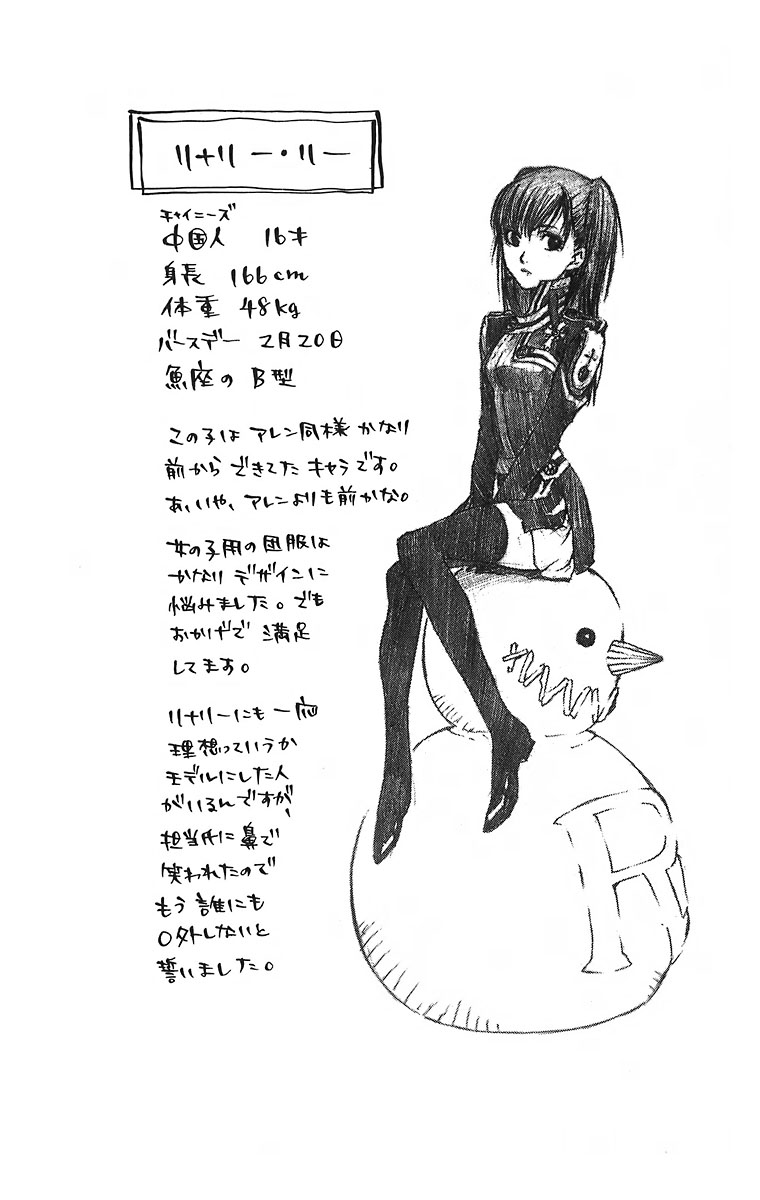 リナリー・リー
チャイニーズ
中国人 16才
身長 166cm
体重 48kg
バースデー 2月20日
魚座の B型
この子は アレン同様 かなり
前から できてた キャラです。
あ、いや、アレンよりも前かな。
女の子用の団服は
かなり デザインに
悩みました。でも
おかげで 満足
してます。
リナリーにも 一応
理想っていうか
モデルにした人
がいるんですが、
担当氏に鼻で
笑われたので
もう 誰にも
口外しないと
誓いました。
R